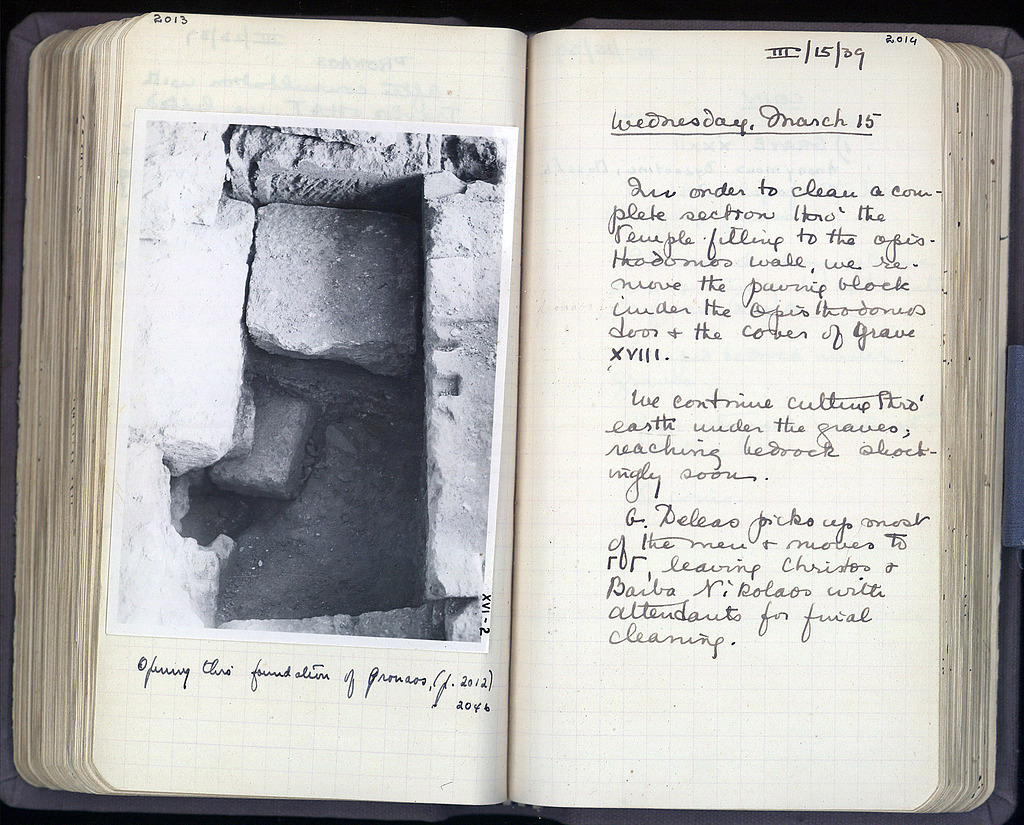 2013
XVI-2
Opening thro' foundation of Pronaos, (p. 2012)
2046
2014
III/15/39
Wednesday, March 15
In order to clean a com-
plete section thro' the
Temple filling to the opis-
thodomos wall, we re-
move the paving block
under the Opisthodomos
door & the cover of Grave
XVIII.
We continue cutting thro'
earth under the graves,
reaching bedrock shock-
ingly soon.
G. Deleas picks up most
of the men & moves to
ΓΓ, leaving Christos &
Barba Nikolaos with
attendants for final
cleaning.